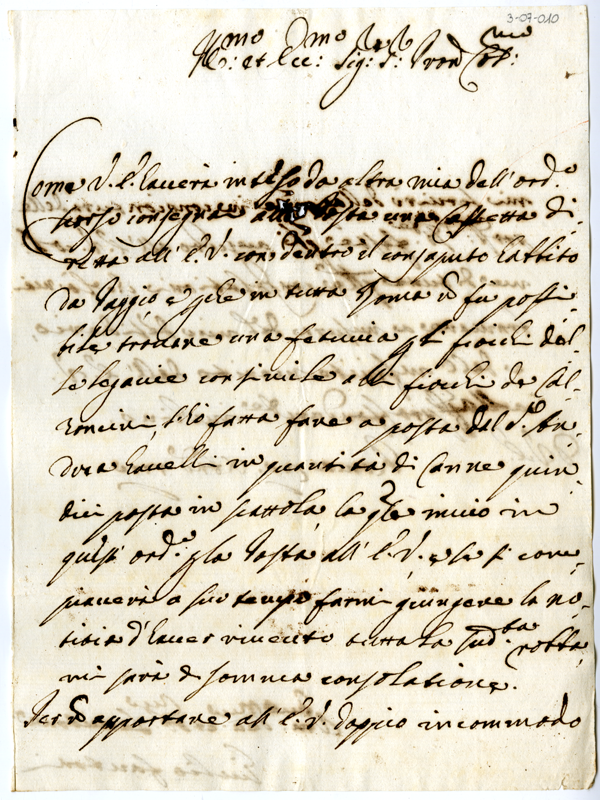 3-07-010
Ill:mo et Ecc:mo Sig:r S:r Pron Col:mo
Come V. E. haverà inteso da altra mia dell'ord.o
scorso consegnai alla Posta una Cassetta di-
retta all'E. V. con dentro il consaputo habbito
da Paggio, e p che in tutta Roma n fù possi-
bile trovare una fetuccia p li fiochi del-
le legaccie consimile alli fiochi de Cal-
zoncini, l'hò fatta fare a posta dal S.r An-
drea Lavelli in quantità di Canne quin-
dici posta in scattola, la qle invio in
quest' ord.o p la Posta all'E. V., e se si com-
piacerà a suo tempo farmi giungere la no-
titia d'haver ricevuto tutta la sud.ta robba,
mi sarà di somma consolatione.
Per n apportare all'E. V. doppio incommodo